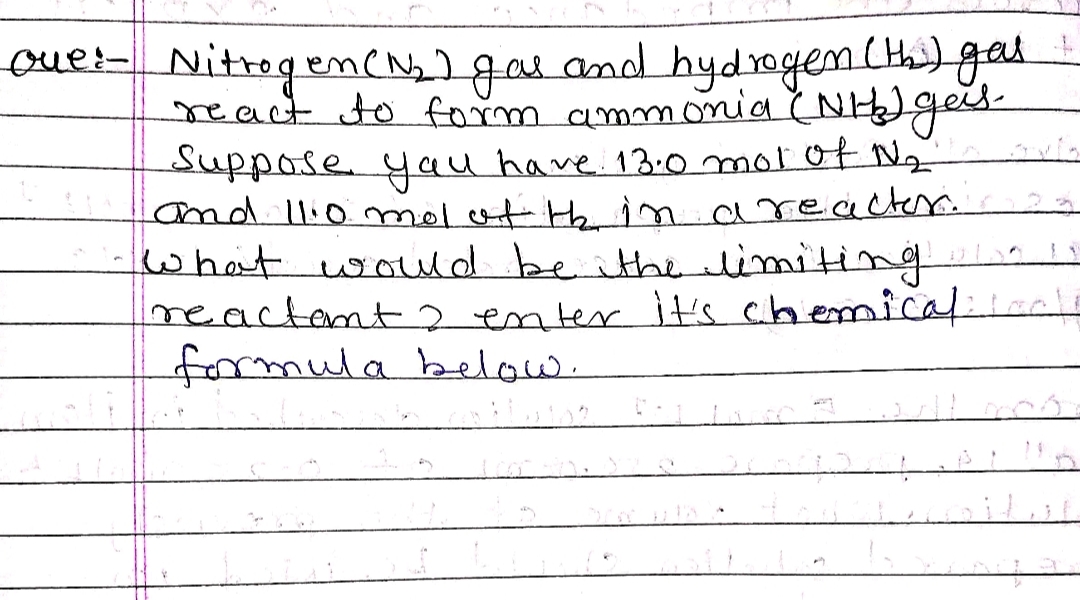 Que:- Nitrogen (N2) gas and hydrogen (H2) gas
react to form ammonia (NH3) gas.
Suppose you have 13.0 mol of N2
and 11.0 mol of H2 in a reactor.
What would be the limiting
reactant? enter it's chemical
formula below.